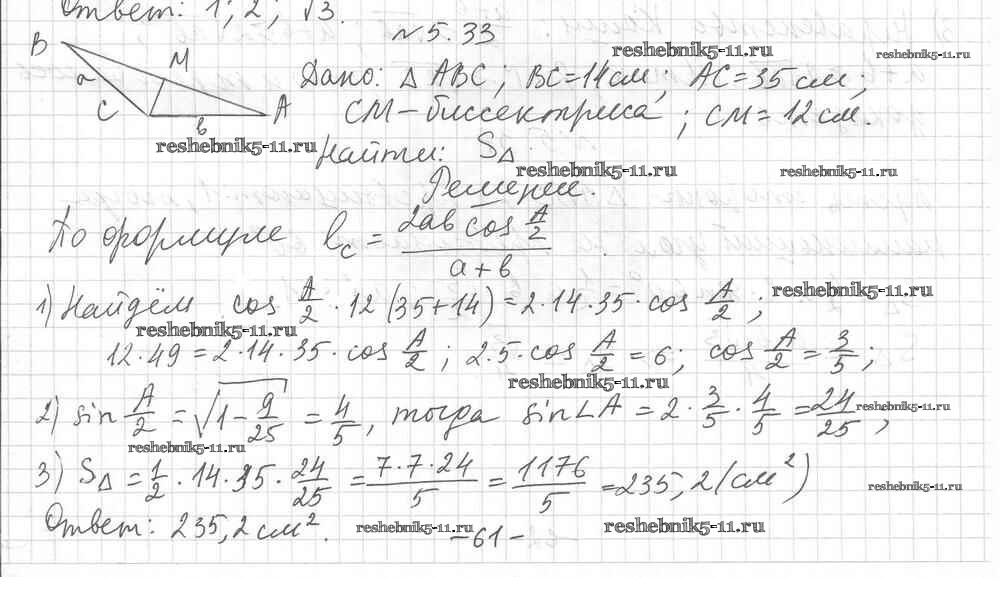 Ответ: 1; 2; √3.
№ 5.33
reshebnik5-11.ru
reshebnik5-11.ru
B
M
a
C
A
в
Дано: △ ABC; BC=14см; AC=35 см;
CM – биссектриса; CM = 12 см.
reshebnik5-11.ru
Найти: S△
reshebnik5-11.ru
reshebnik5-11.ru
Решение.
По формуле lc = 2ав cos A/2 / а+в
1) Найдём cos A/2 · 12 (35+14) = 2·14·35· cos A/2 ;
reshebnik5-11.ru
reshebnik5-11.ru
12·49 = 2·14·35· cos A/2 ; 2·5·cos A/2 = 6; cos A/2 = 3/5 ;
reshebnik5-11.ru
2) sin A/2 = √1 - 9/25 = 4/5, тогда sin∠A = 2 · 3/5 · 4/5 = 24/25 ,
reshebnik5-11.ru
reshebnik5-11.ru
3) S△ = 1/2 · 14 · 35 · 24/25 = 7·7·24/5 = 1176/5 = 235,2 (см²)
reshebnik5-11.ru
Ответ: 235,2 см².
reshebnik5-11.ru
reshebnik5-11.ru
- 61 -